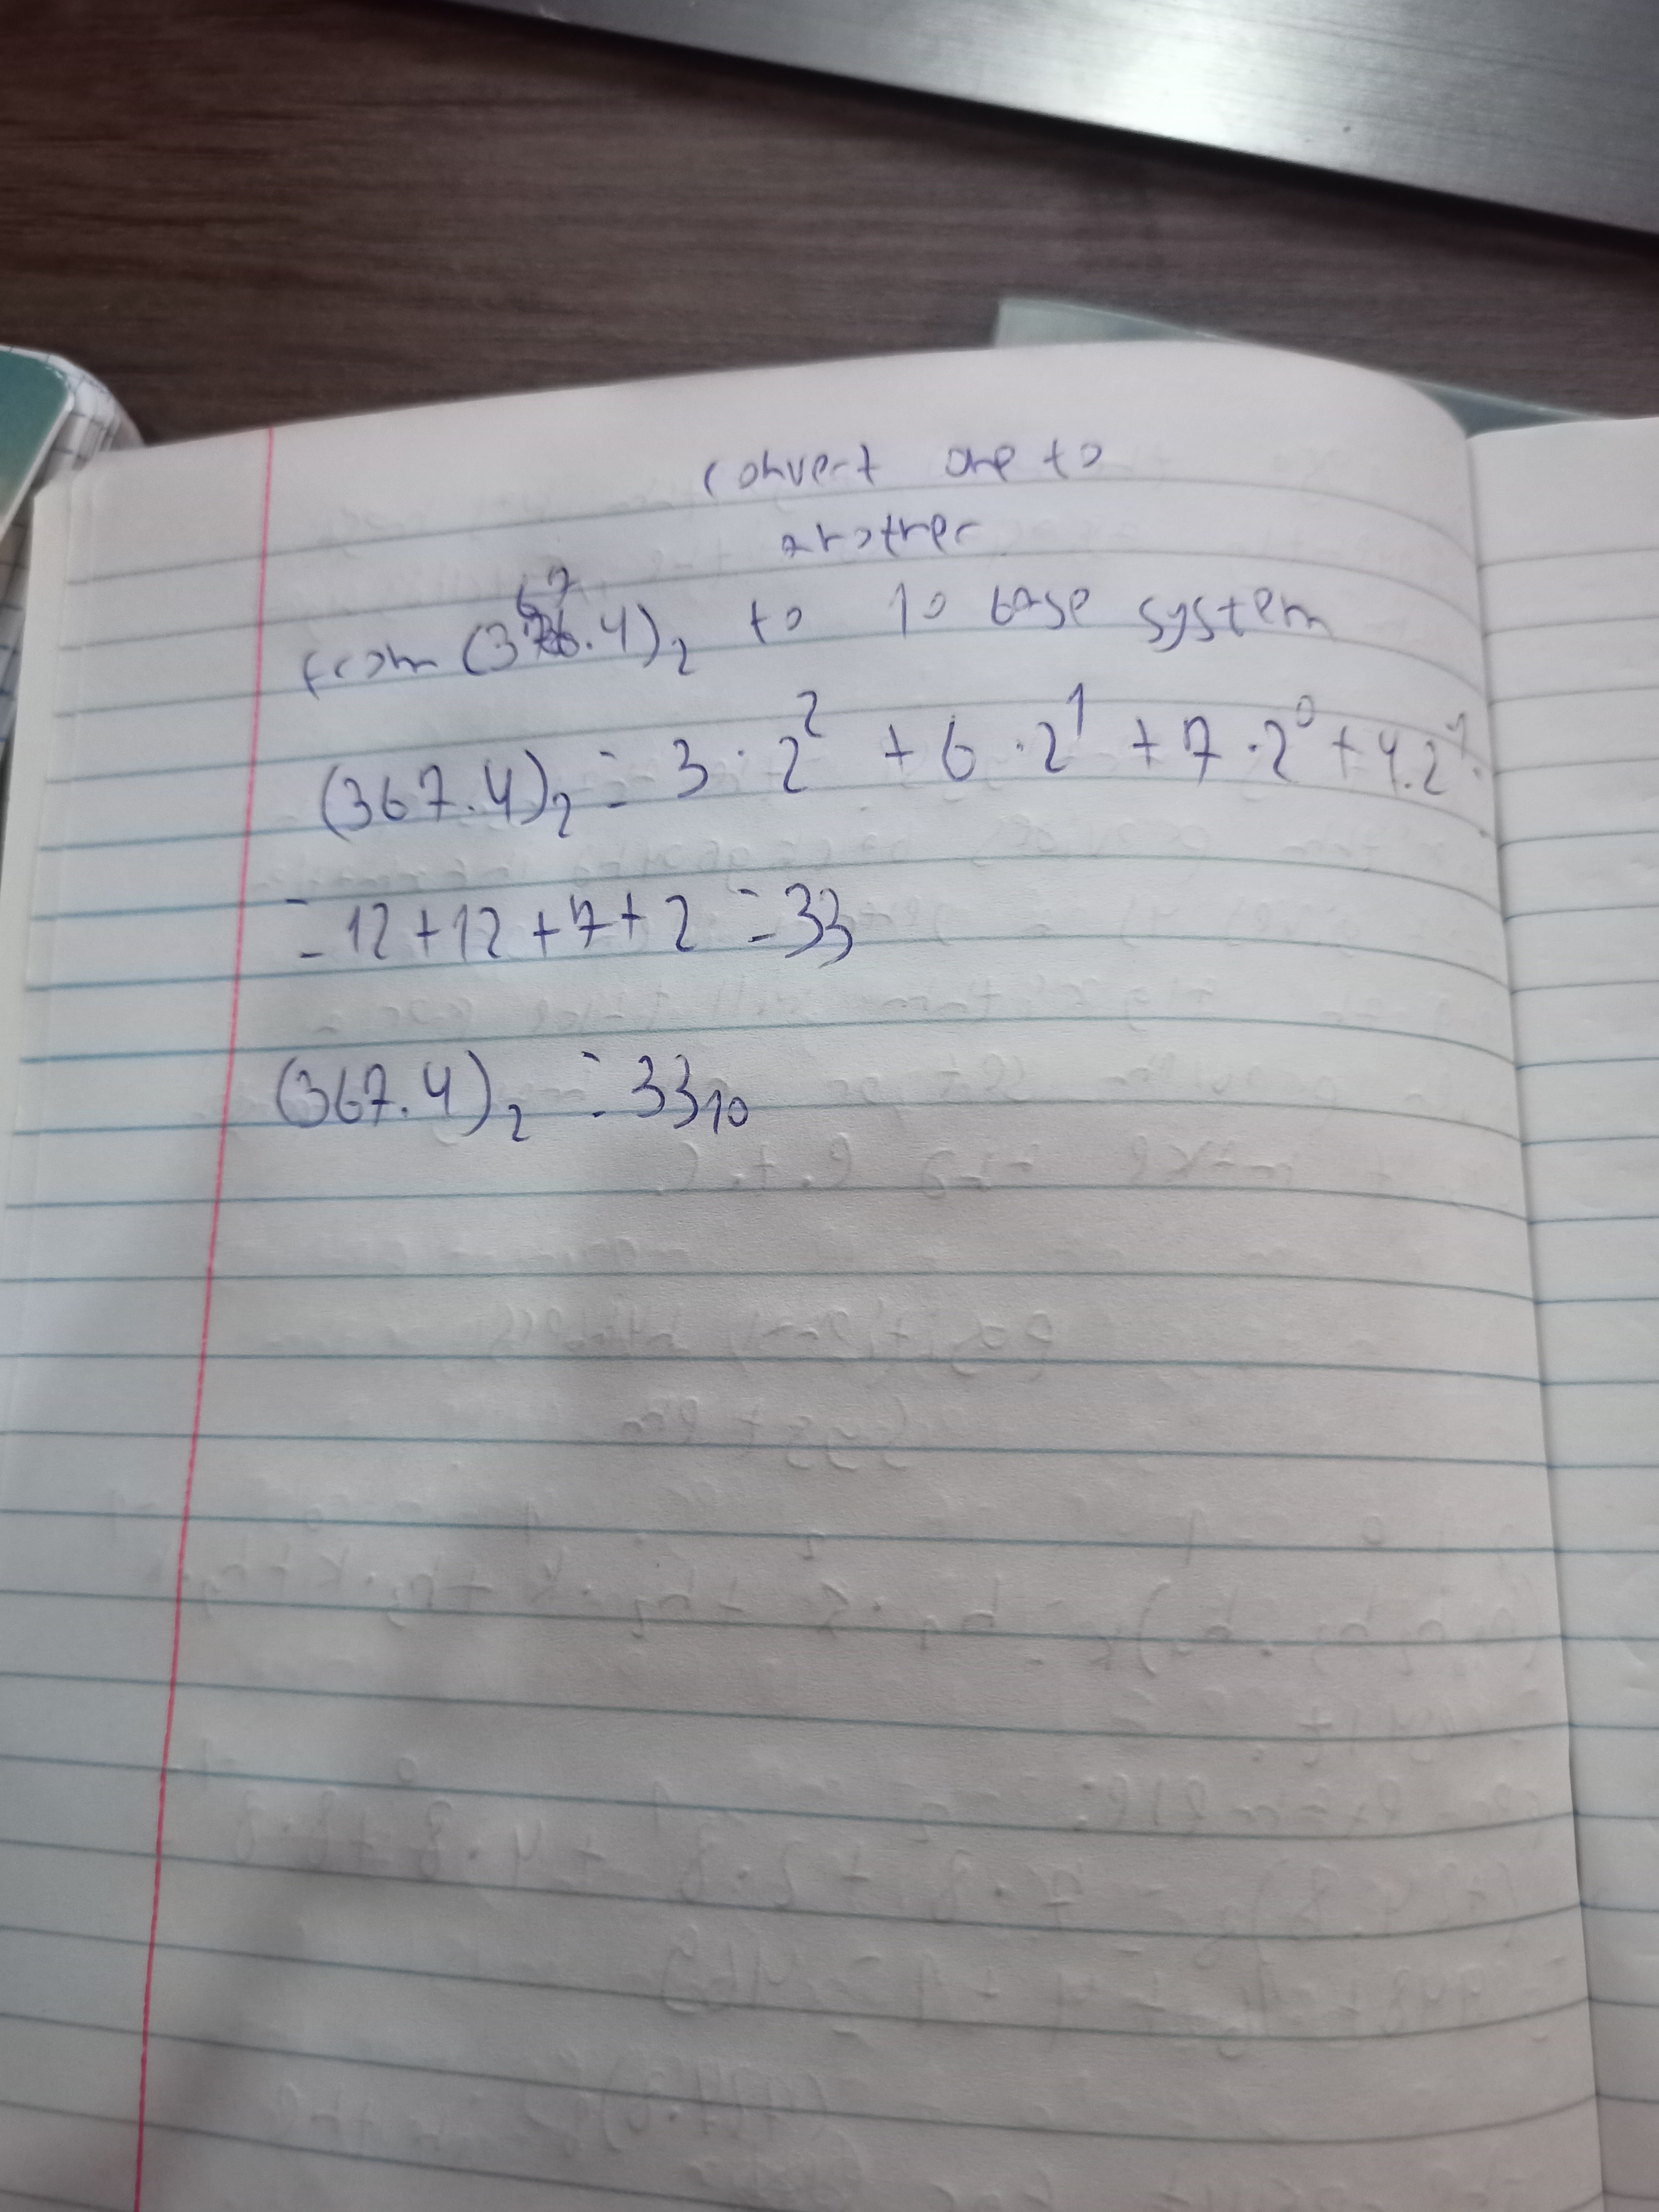 convert one to
another
from (367.4)₂ to 10 base system
(367.4)₂ = 3 · 2² + 6 · 2¹ + 7 · 2⁰ + 4 · 2⁻¹
= 12 + 12 + 7 + 2 = 33
(367.4)₂ = 33₁₀